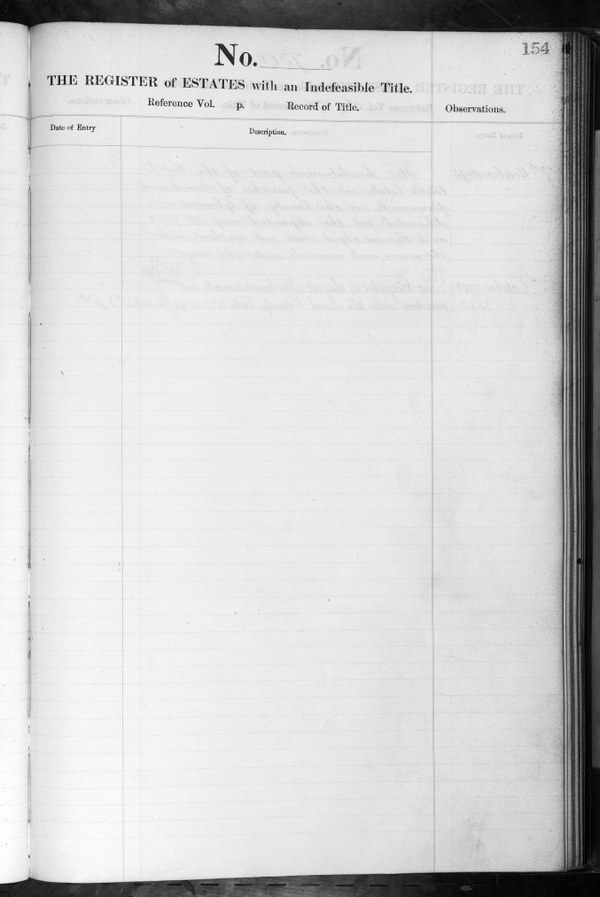 154
No.
THE REGISTER of ESTATES with an Indefeasible Title.
Reference Vol. p. Record of Title.
Observations.
Date of Entry
Description.